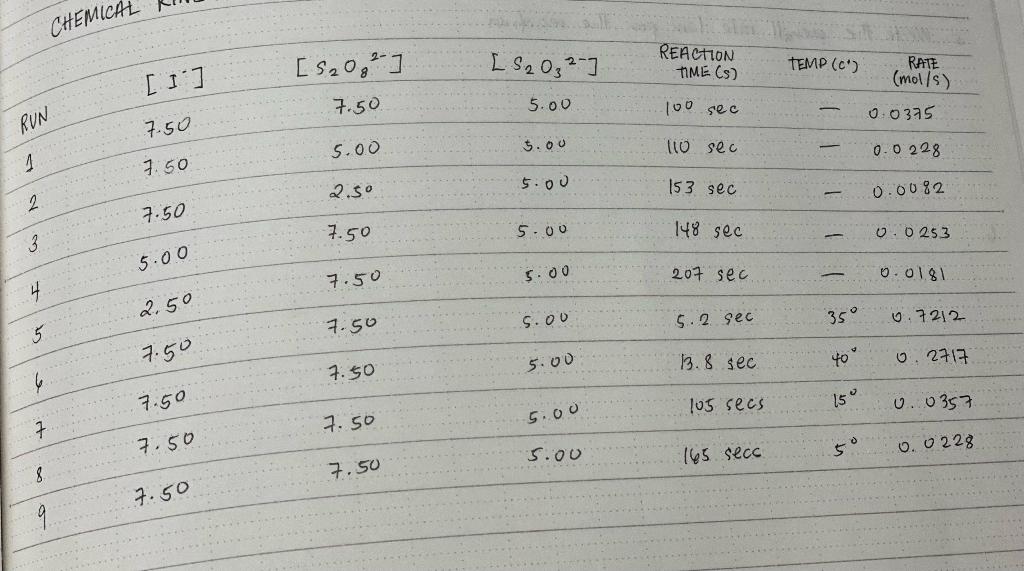 CHEMICAL
RUN [I⁻] [S₂O₈²⁻] [S₂O₃²⁻] REACTION TIME (s) TEMP (C°) RATE (mol/s)
1 7.50 7.50 5.00 100 sec — 0.0375
2 7.50 5.00 5.00 110 sec — 0.0228
3 7.50 2.50 5.00 153 sec — 0.0082
4 5.00 7.50 5.00 148 sec — 0.0253
5 2.50 7.50 5.00 207 sec — 0.0181
6 7.50 7.50 5.00 5.2 sec 35° 0.7212
7 7.50 7.50 5.00 13.8 sec 40° 0.2717
8 7.50 7.50 5.00 105 secs 15° 0.0357
9 7.50 7.50 5.00 165 secs 5° 0.0228